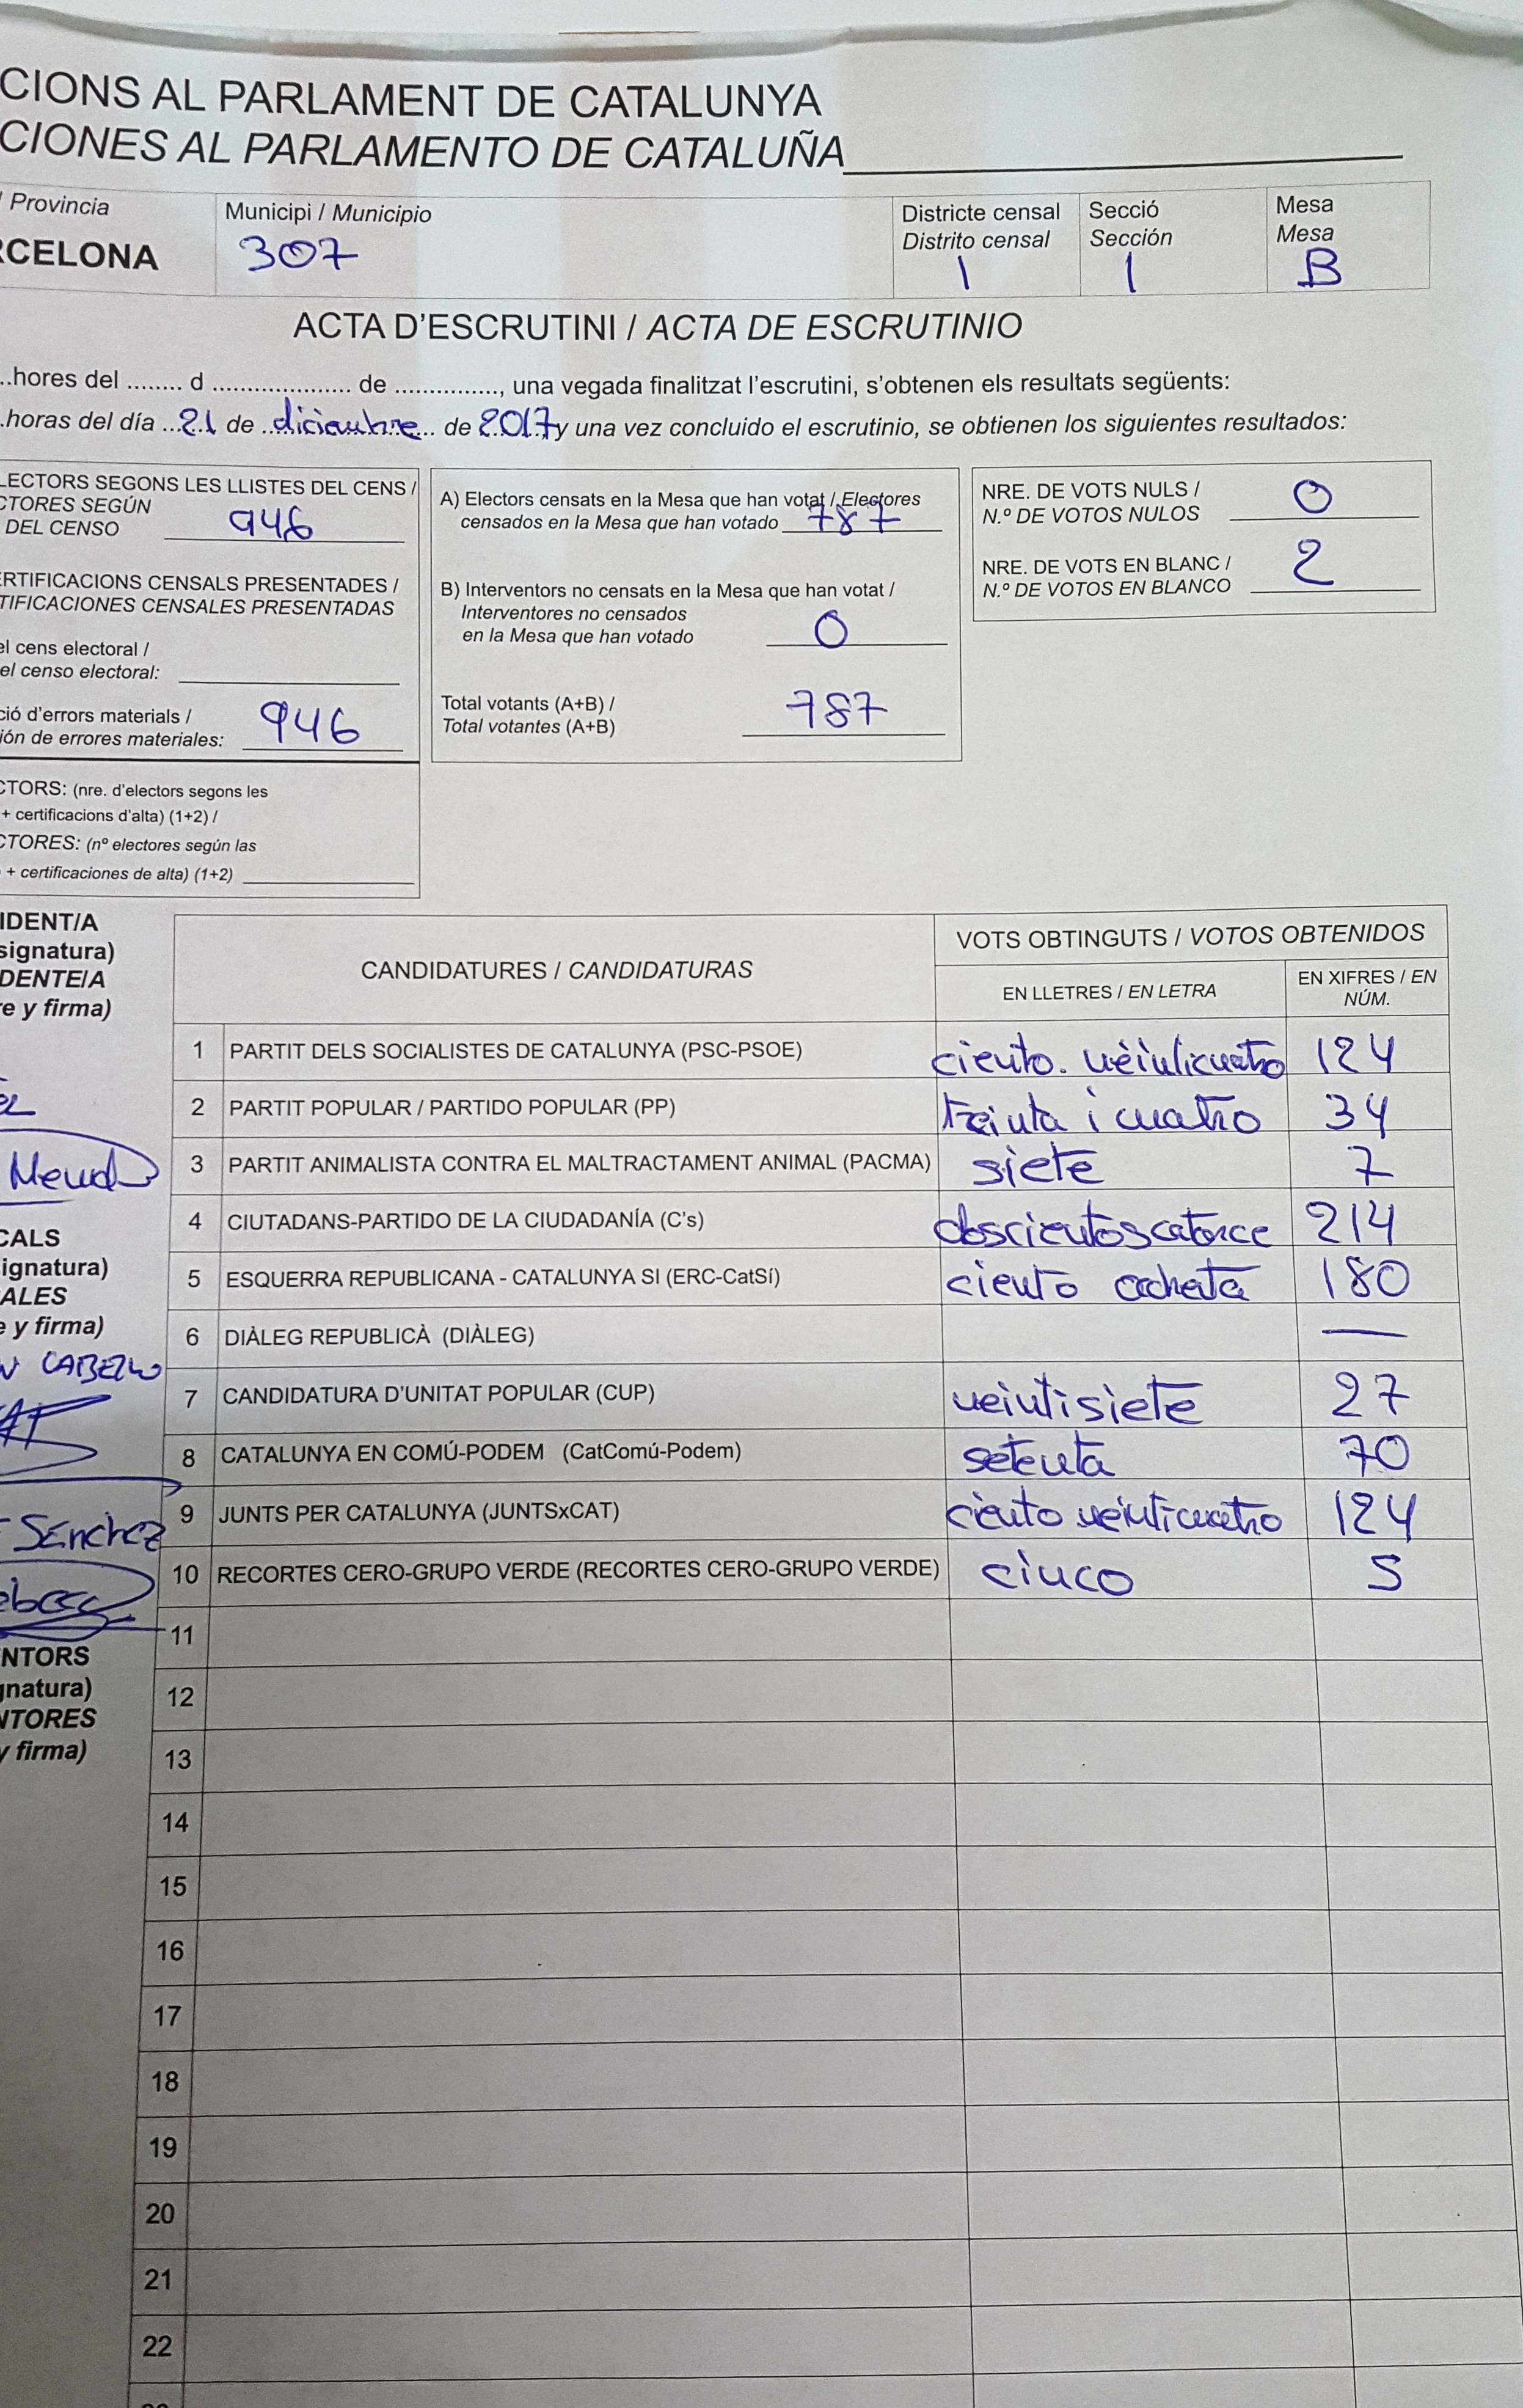 CIONS AL PARLAMENT DE CATALUNYA
CIONES AL PARLAMENTO DE CATALUÑA
/ Provincia
RCELONA
Municipi / Municipio
307
Districte censal
Distrito censal
1
Secció
Sección
1
Mesa
Mesa
B
ACTA D'ESCRUTINI / ACTA DE ESCRUTINIO
..hores del ........ d ..................... de ..............., una vegada finalitzat l'escrutini, s'obtenen els resultats següents:
.horas del día ...21 de ..diciembre... de 2017 y una vez concluido el escrutinio, se obtienen los siguientes resultados:
LECTORS SEGONS LES LLISTES DEL CENS /
CTORES SEGÚN
DEL CENSO 946
ERTIFICACIONS CENSALS PRESENTADES /
TIFICACIONES CENSALES PRESENTADAS
el cens electoral /
el censo electoral:
ció d'errors materials /
ión de errores materiales: 946
CTORS: (nre. d'electors segons les
+ certificacions d'alta) (1+2) /
CTORES: (nº electores según las
+ certificaciones de alta) (1+2)
A) Electors censats en la Mesa que han votat / Electores
censados en la Mesa que han votado 787
B) Interventors no censats en la Mesa que han votat /
Interventores no censados
en la Mesa que han votado 0
Total votants (A+B) /
Total votantes (A+B) 787
NRE. DE VOTS NULS /
N.º DE VOTOS NULOS 0
NRE. DE VOTS EN BLANC /
N.º DE VOTOS EN BLANCO 2
IDENT/A
signatura)
DENTE/A
e y firma)
CALS
ignatura)
ALES
e y firma)
CABELLO
Sánchez
NTORS
gnatura)
NTORES
y firma)
CANDIDATURES / CANDIDATURAS
VOTS OBTINGUTS / VOTOS OBTENIDOS
EN LLETRES / EN LETRA
EN XIFRES / EN
NÚM.
1 PARTIT DELS SOCIALISTES DE CATALUNYA (PSC-PSOE) ciento. veinticuatro 124
2 PARTIT POPULAR / PARTIDO POPULAR (PP) treinta i cuatro 34
3 PARTIT ANIMALISTA CONTRA EL MALTRACTAMENT ANIMAL (PACMA) siete 7
4 CIUTADANS-PARTIDO DE LA CIUDADANÍA (C's) doscientos catorce 214
5 ESQUERRA REPUBLICANA - CATALUNYA SI (ERC-CatSí) ciento ochenta 180
6 DIÀLEG REPUBLICÀ (DIÀLEG) —
7 CANDIDATURA D'UNITAT POPULAR (CUP) veintisiete 27
8 CATALUNYA EN COMÚ-PODEM (CatComú-Podem) setenta 70
9 JUNTS PER CATALUNYA (JUNTSxCAT) ciento veinticuatro 124
10 RECORTES CERO-GRUPO VERDE (RECORTES CERO-GRUPO VERDE) cinco 5
11
12
13
14
15
16
17
18
19
20
21
22